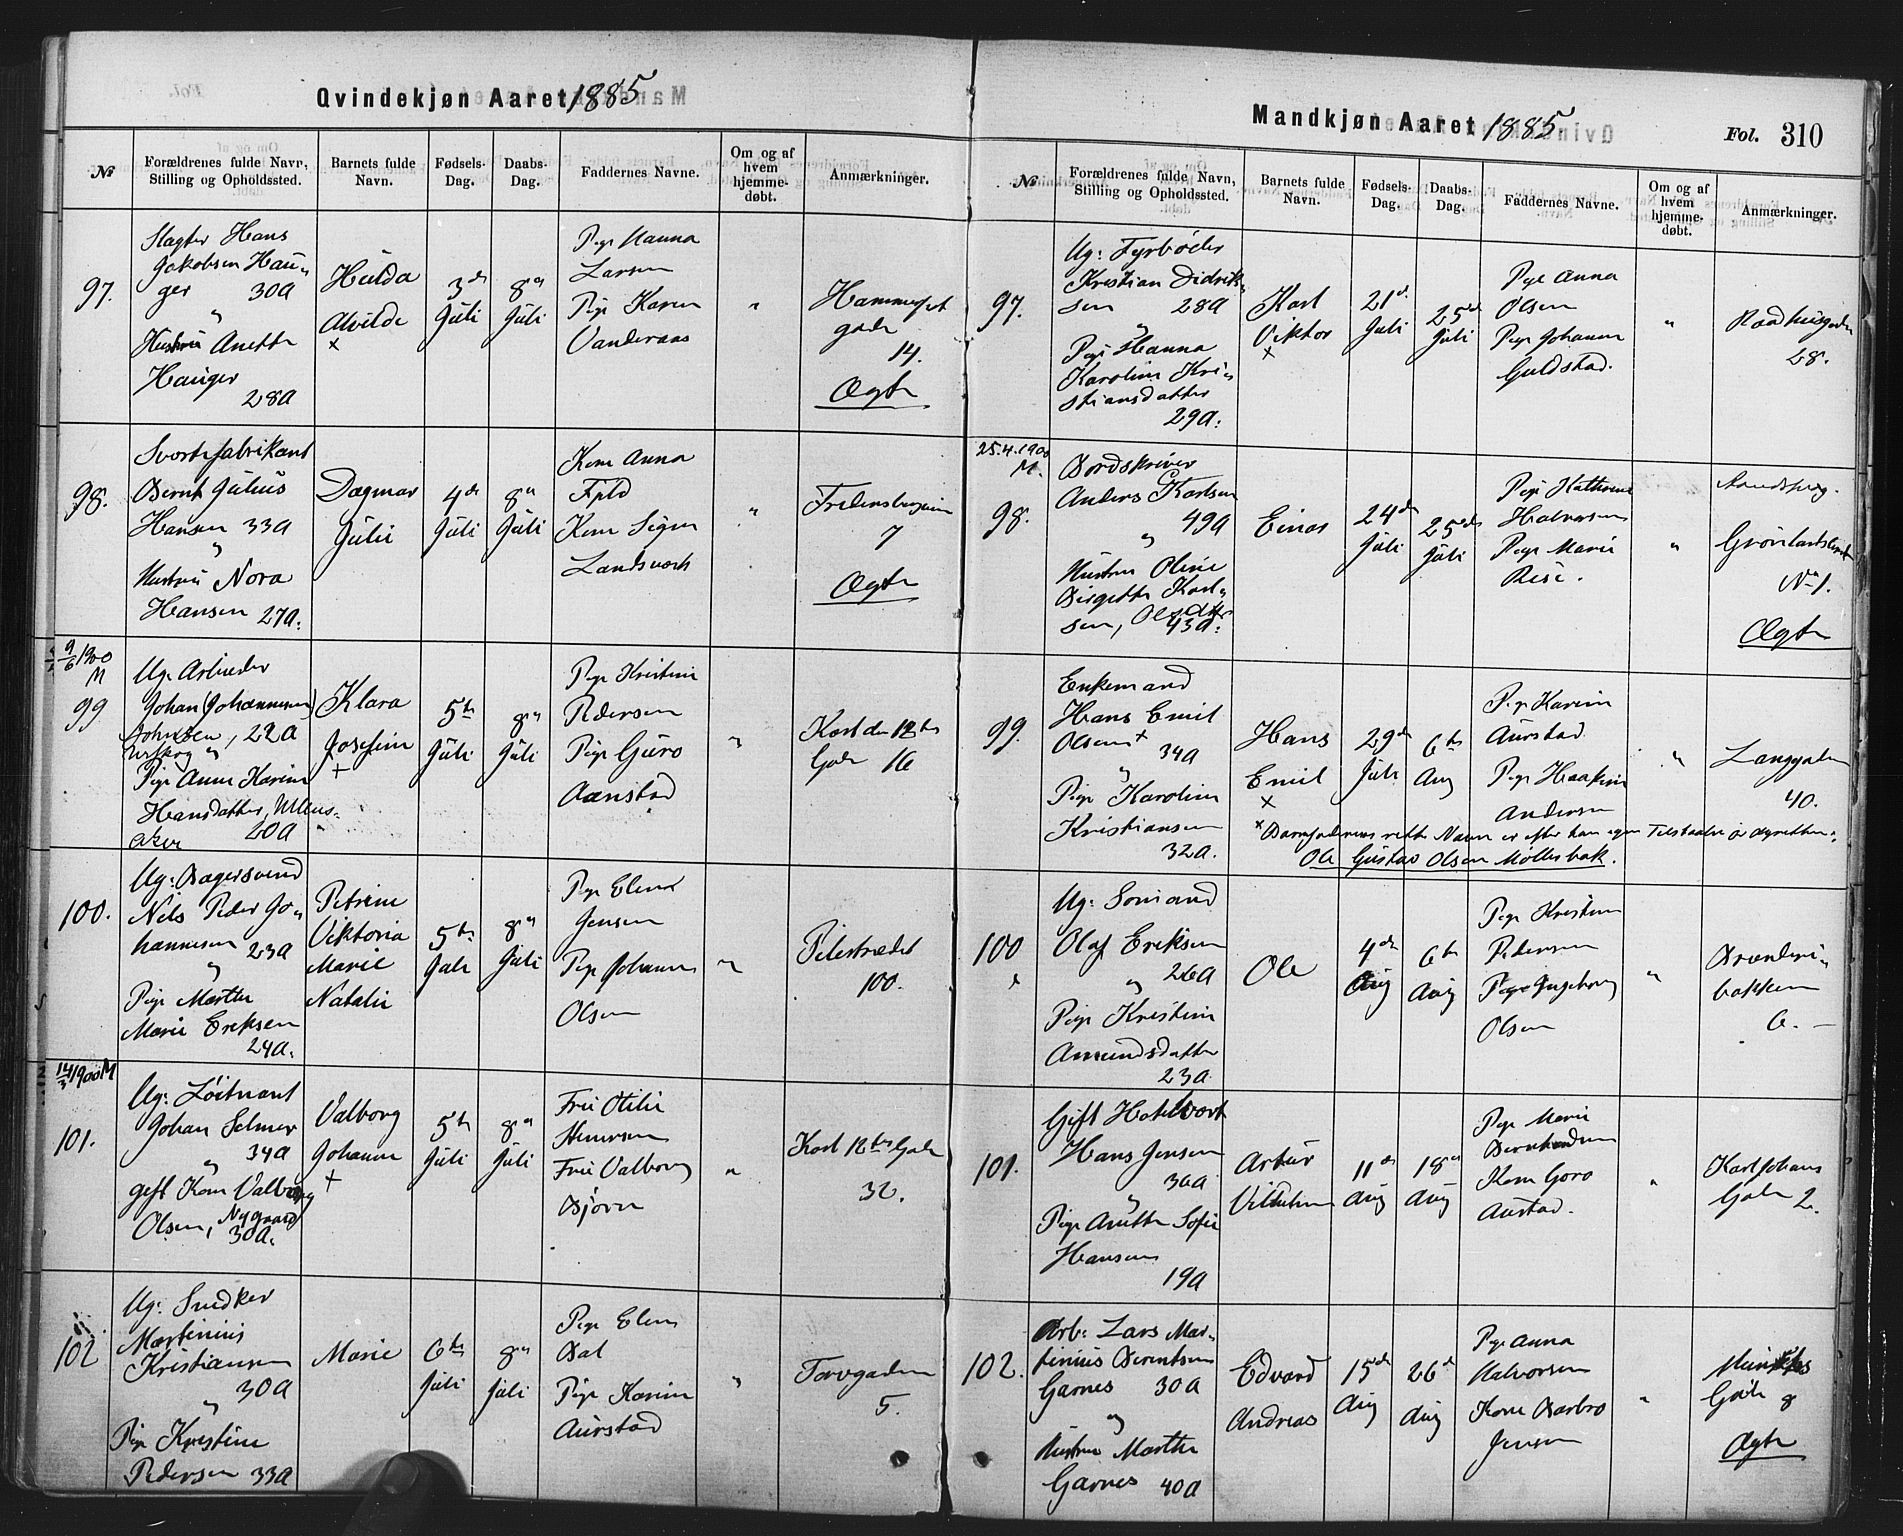 Qvindekjøn Aaret 1885
№
Forældrenes fulde Navn,
Stilling og Opholdssted.
Barnets fulde
Navn.
Fødsels-
Dag.
Daabs-
Dag.
Faddernes Navne.
Om og af
hvem
hjemme-
døbt.
Anmærkninger.
97.
Slagter Hans
Jakobsen Hau„
ger 30A
„
Hustru Anette
Hauger
28A
Hulda
Alvilde
×
3de
Juli
8de
Juli
Pige Hanna
Larsen
Pige Karen
Vanderaas
„
gade
14.
Ægte
98.
Sværtefabrikant
Bernt Julius
Hansen 33A
„
Hustru Nora
Hansen 27A.
Dagmar
Julie
4de
Juli
8de
Juli
Kone Anna
Kone Signe
„
7
Ægte
9/6 1900
M
99
Ug. Arbeider
Johan (Johannesen)
Johnsen, 22A
Urskog „
Pige Anne Karine
Hansdatter, Ullens-
aker 20A
Klara
Josefine
+
5te
Juli
8de
Juli
Pige Kristine
Pedersen
Pige Guro
Aanstad
„
Karl den 12tes
Gade 16
100.
Ug: Bagersvend
Nils Peder Jo„
hannesen 23A
„
Pige Marthe
Marie Eriksen
24A.
Petrine
Viktoria
Marie
Natalie
5te
Juli
8de
Juli
Pige Elena
Jensen
Pige Johanne
Olsen
„
Pilestrædet
100.
14/3 1900 M
101.
Ug: Løitnant
Johan Selmer
34A
„
gift Kone Valborg
Olsen, Nygaard
30A.
Valborg
Johanne
+
5te
Juli
8de
Juli
Fru Otilie
Fru Valborg
Bjørn
„
Karl 12tes Gade
32.
102
Ug: Snedker
Martinius
Kristiansen
30A
„
Pige Kristine
Pedersen 33A
Marie
6te
Juli
8de
Juli
Pige Elena
Dal
Pige Karine
Aurstad
„
Torvgaden
5.
Mandkjøn Aaret 1885
Fol. 310
№
Forældrenes fulde Navn,
Stilling og Opholdssted.
Barnets fulde
Navn.
Fødsels-
Dag.
Daabs-
Dag.
Faddernes Navne.
Om og af
hvem
hjemme-
døbt.
Anmærkninger.
97.
Ug: Fyrbøder
Kristian Didrik-
sen 28A
„
Pige Hanna
Karoline Kri„
stiansdatter
29A.
Karl
Viktor
×
21de
Juli
25de
Juli
Pige Anna
Olsen
Pige Johanne
Guldstad.
„
Raadhusgaden
28.
25.4.1900
M.
98.
Bordskriver
Anders Karlsen
49A
„
Hustru Oline
Birgitte Karl„
sen, Olsdtter
43A.
Einar
24de
Juli
25de
Juli
Pige Kathrine
Halvorsen
Pige Marie
Reise.
„
№ 1.
Ægte
99.
Enkemand
Hans Emil
Olsen+
34A
„
Pige Karoline
Kristiansen
32A.
Hans
Emil
×
29de
Juli
6te
Aug
Pige Karine
Aurstad
Pige Haakine
Andersen
„
Langgaden
40.
× Barnefaderens rette Navn er efter hans egen Tilstaaelse
Ole Gustav Olsen Møllerbak.
100
×
Ug: Sømand
Olaf Eriksen
26A
„
Pige Kristine
Amundsdatter
23A
Ole
4de
Aug
6te
Aug
Pige Kristine
Pedersen
Pige Ingeborg
Olsen
„
Brænderi„
bakken
6.
101.
Gift Hotelvært
Hans Jensen
36A
„
Pige Anette Sofie
Hansen
19A
Artur
Vilhelm
11de
Aug
18de
Aug
Pige Marie
Kone Goro
Aurstad.
„
Karl Johans
Gade 2.
102.
Arb: Lars Mar„
tinius Berentsen
Garnes 30A
„
Hustru Marthe
Garnes 40A
Edvard
Andreas
15de
Aug
26de
Aug
Pige Anna
Halvorsen
Kone Barbro
Jensen
„
Munkes
Gade 8
Ægte